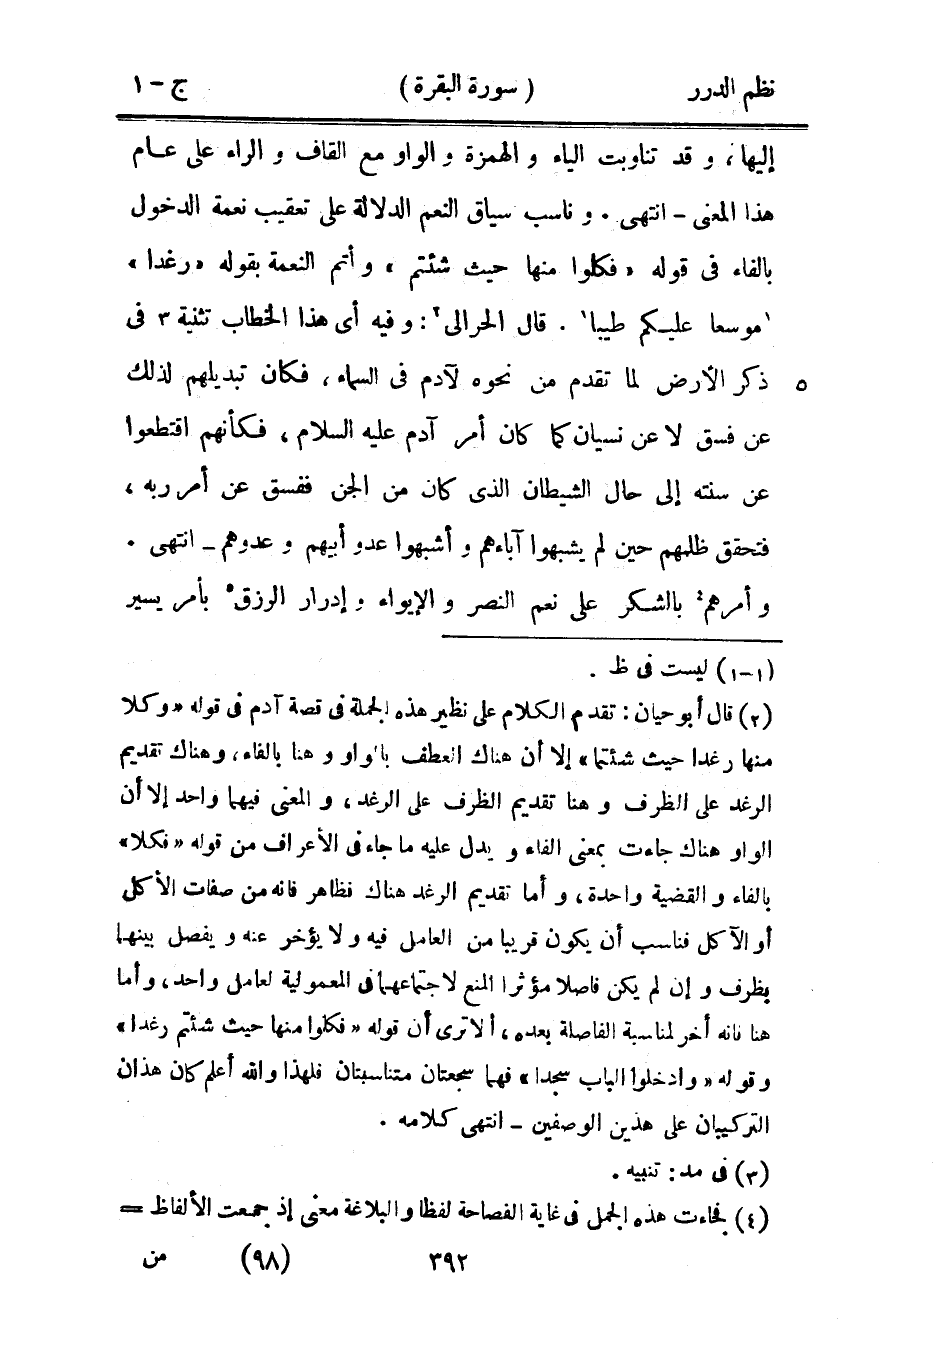 نظم الدرر ( سورة البقرة ) ج - ١
إليها، و قد تناوبت الياء و الهمزة و الواو مع القاف و الراء على عام
هذا المعنى - انتهى . و ناسب سياق النعم الدلالة على تعقيب نعمة الدخول
بالفاء فى قوله « فكلوا منها حيث شئتم » و أتم النعمة بقوله « رغدا »
١موسعا عليكم طيبا١ . قال الحرالى٢: و فيه أى هذا الخطاب تثنية ٣ فى
٥ ذكر الأرض لما تقدم من نحوه لآدم فى السماء ، فكان تبديلهم لذلك
عن فسق لا عن نسيان كما كان أمر آدم عليه السلام ، فكأنهم اقتطعوا
عن سنته إلى حال الشيطان الذى كان من الجن ففسق عن أمر ربه ،
فتحقق ظلمهم حين لم يشبهوا آباءهم و أشبهوا عدو أبيهم و عدوهم - انتهى .
و أمرهم٤ بالشكر على نعم النصر و الإيواء و إدرار الرزق٥ بأمر يسير
(١-١) ليست فى ظ .
(٢) قال أبو حيان : تقدم الكلام على نظير هذه الجملة فى قصة آدم فى قوله « و كلا
منها رغدا حيث شئتما » إلا أن هناك العطف بالواو و هنا بالفاء ، و هناك تقديم
الرغد على الظرف و هنا تقديم الظرف على الرغد ، و المعنى فيهما واحد إلا أن
الواو هناك جاءت بمعنى الفاء و يدل عليه ما جاء فى الأعراف من قوله « فكلا »
بالفاء و القضية واحدة ، و أما تقديم الرغد هناك فظاهر فانه من صفات الأكل
أو الآكل فناسب أن يكون قريبا من العامل فيه و لا يؤخر عنه و يفصل بينهما
بظرف و إن لم يكن فاصلا مؤثرا المنع لاجتماعهما فى المعمولية لعامل واحد ، و أما
هنا فانه أخر لمناسبة الفاصلة بعده ، ألا ترى أن قوله « فكلوا منها حيث شئتم رغدا »
و قوله « و ادخلوا الباب سجدا » فهما سجعتان متناسبتان فلهذا والله أعلم كان هذان
التركيبان على هذين الوصفين - انتهى كلامه .
(٣) فى مد : تنبيه .
(٤) فجاءت هذه الجمل فى غاية الفصاحة لفظا و البلاغة معنى إذ جمعت الألفاظ =
٣٩٢ (٩٨) من